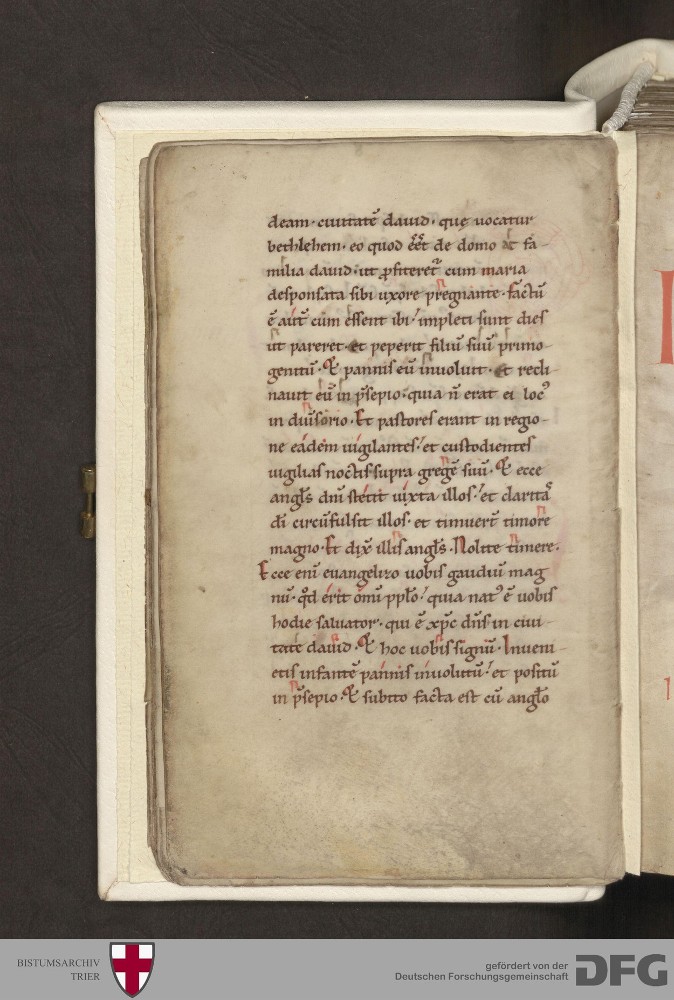 deam · ciuitatē dauid · quę uocatur
bethlehem · eo quod eēt de domo et fa-
milia dauid · ut ꝓfiteret᷑ cum maria
desponsata sibi uxore pregnante · factū
ē aut̄ cum essent ibi · impleti sunt dies
ut pareret · et peperit filiū suū primo-
genitū · Et pannis eū inuoluit · et recli-
nauit eū in p̄sepio · quia n̄ erat ei locꝰ
in diūsorio · Et pastores erant in regio-
ne eadem uigilantes · et custodientes
uigilias noctis supra gregē suū · Et ecce
angl̄s dn̄i stetit iuxta illos · et claritaˢ
dī circūfulsit illos · et timuer̄t timore
magno · Et dix̄ illis angl̄s · Nolite timere ·
Ecce eni̅ euangelizo uobis gaudiū mag
nū · qd̄ erit om̄i ppl̄o · quia natꝰ ē uobis
hodie saluator · qui ē xp̄c dn̄s in ciui-
tate dauid · Et hoc uobis signū · Inueni-
etis infantē pannis inuolutū · et positū
in p̄sepio · Et subito facta est cū angl̄o
BISTUMSARCHIV
TRIER
gefördert von der
Deutschen Forschungsgemeinschaft
DFG